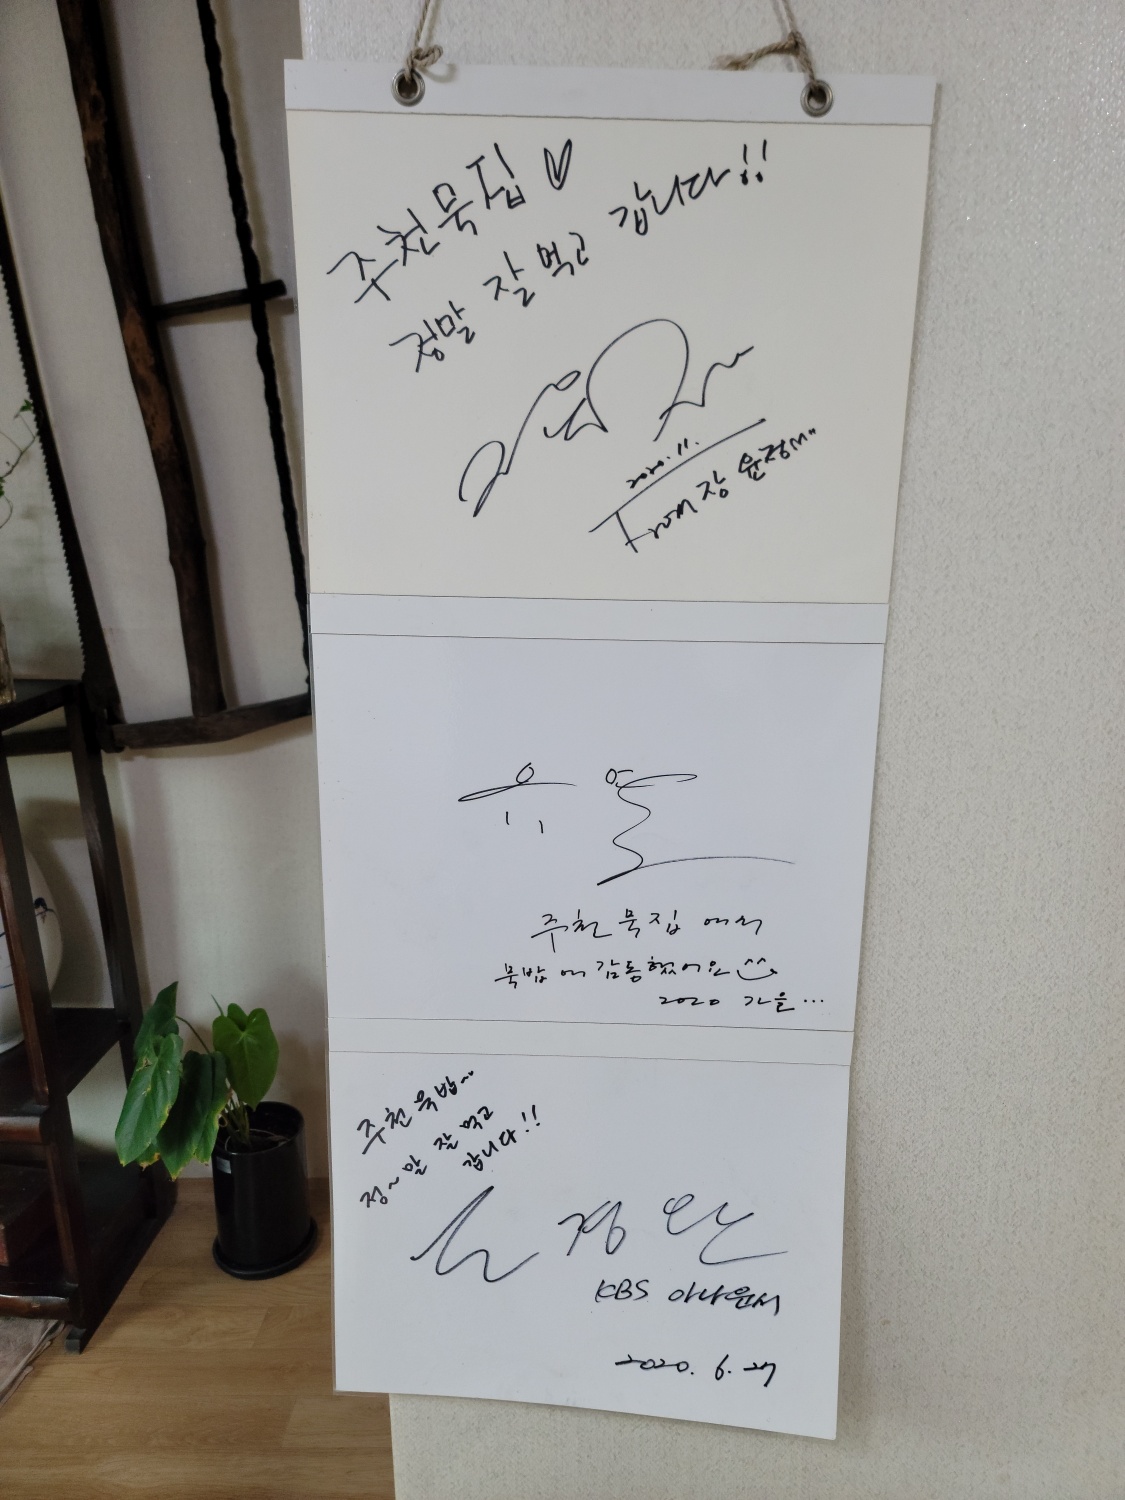 주천묵집 ♡
정말 잘 먹고 갑니다!!
2020.11.
From 장윤정
주천묵집에서
묵밥에 감동했어요 ^^
2020 가을...
주천묵밥~
정~말 잘 먹고
갑니다!!
정완
KBS 아나운서
2020. 6. 27